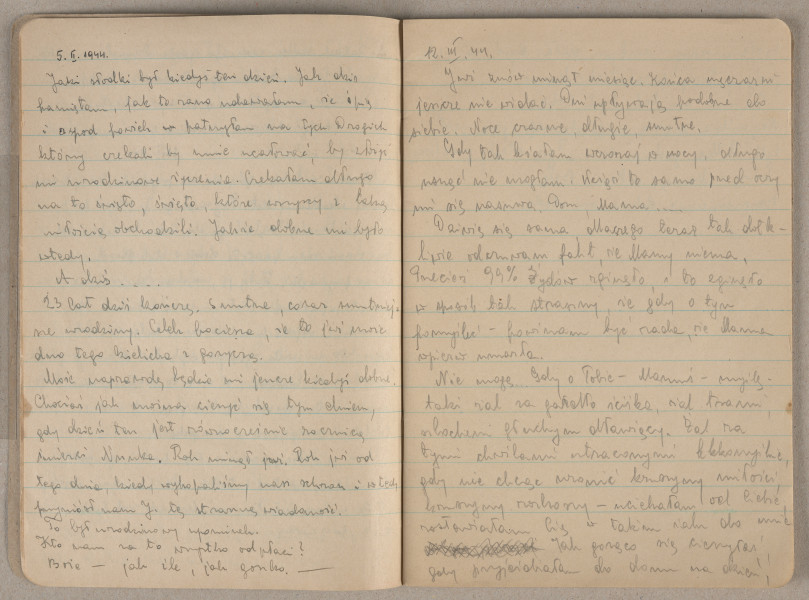 5. II. 1944.
Jaki słodki był kiedyś ten dzień. Jak dziś
pamiętam, jak to rano udawałam, że śpię
i spod powiek patrzyłam na tych Drogich
którzy czekali by mnie ucałować, by złożyć
mi urodzinowe życzenia. Czekałam długo
na to święto, święto, które wszyscy z taką
miłością obchodzili. Jakże dobrze mi było
wtedy.
A dziś ....
23 lat dziś kończę. Smutne, coraz smutniej-
sze urodziny. Celek pociesza, że to już może
dno tego kielicha z goryczą.
Może naprawdę będzie mi jeszcze kiedyś dobrze.
Chociaż jak można cieszyć się tym dniem,
gdy dzień ten jest równocześnie rocznicą
śmierci Nunka. Rok minął już. Rok już od
tego dnia, kiedy wykopaliśmy nasz schron i wtedy
przyniósł nam J. tę straszną wiadomość.
To był urodzinowy upominek.
Kto nam za to wszystko odpłaci?
Boże — jak źle, jak gorzko. —
12. III. 44.
Już znów minął miesiąc. Końca męczarni
jeszcze nie widać. Dni upływają podobne do
siebie. Noce czarne, długie, smutne.
Gdy tak leżałam wczoraj w nocy, długo
usnąć nie mogłam. Wciąż to samo przed oczy
mi się nasuwa. Dom, Mama ....
Dziwię się sama dlaczego teraz tak dotk-
liwie odczuwam fakt, że Mamy niema.
Przecież 99% Żydów zginęło, i to zginęło
w sposób tak straszny, że gdy o tym
pomyśleć – powinnam być rada, że Mama
wpierw umarła.
Nie mogę. Gdy o Tobie – Mamuś – myślę,
taki żal za gardło ściska, żal
szlochem głuchym dławiący. Żal za
tymi chwilami utraconymi lekkomyślnie,
gdy nie chcąc wzamian miłości
rozkoszy – uciekałam od Ciebie,
zostawiałam Cię w takim żalu do mnie
Jak gorąco się cieszyłaś,
gdy przyjeżdżałam do domu na dzień,